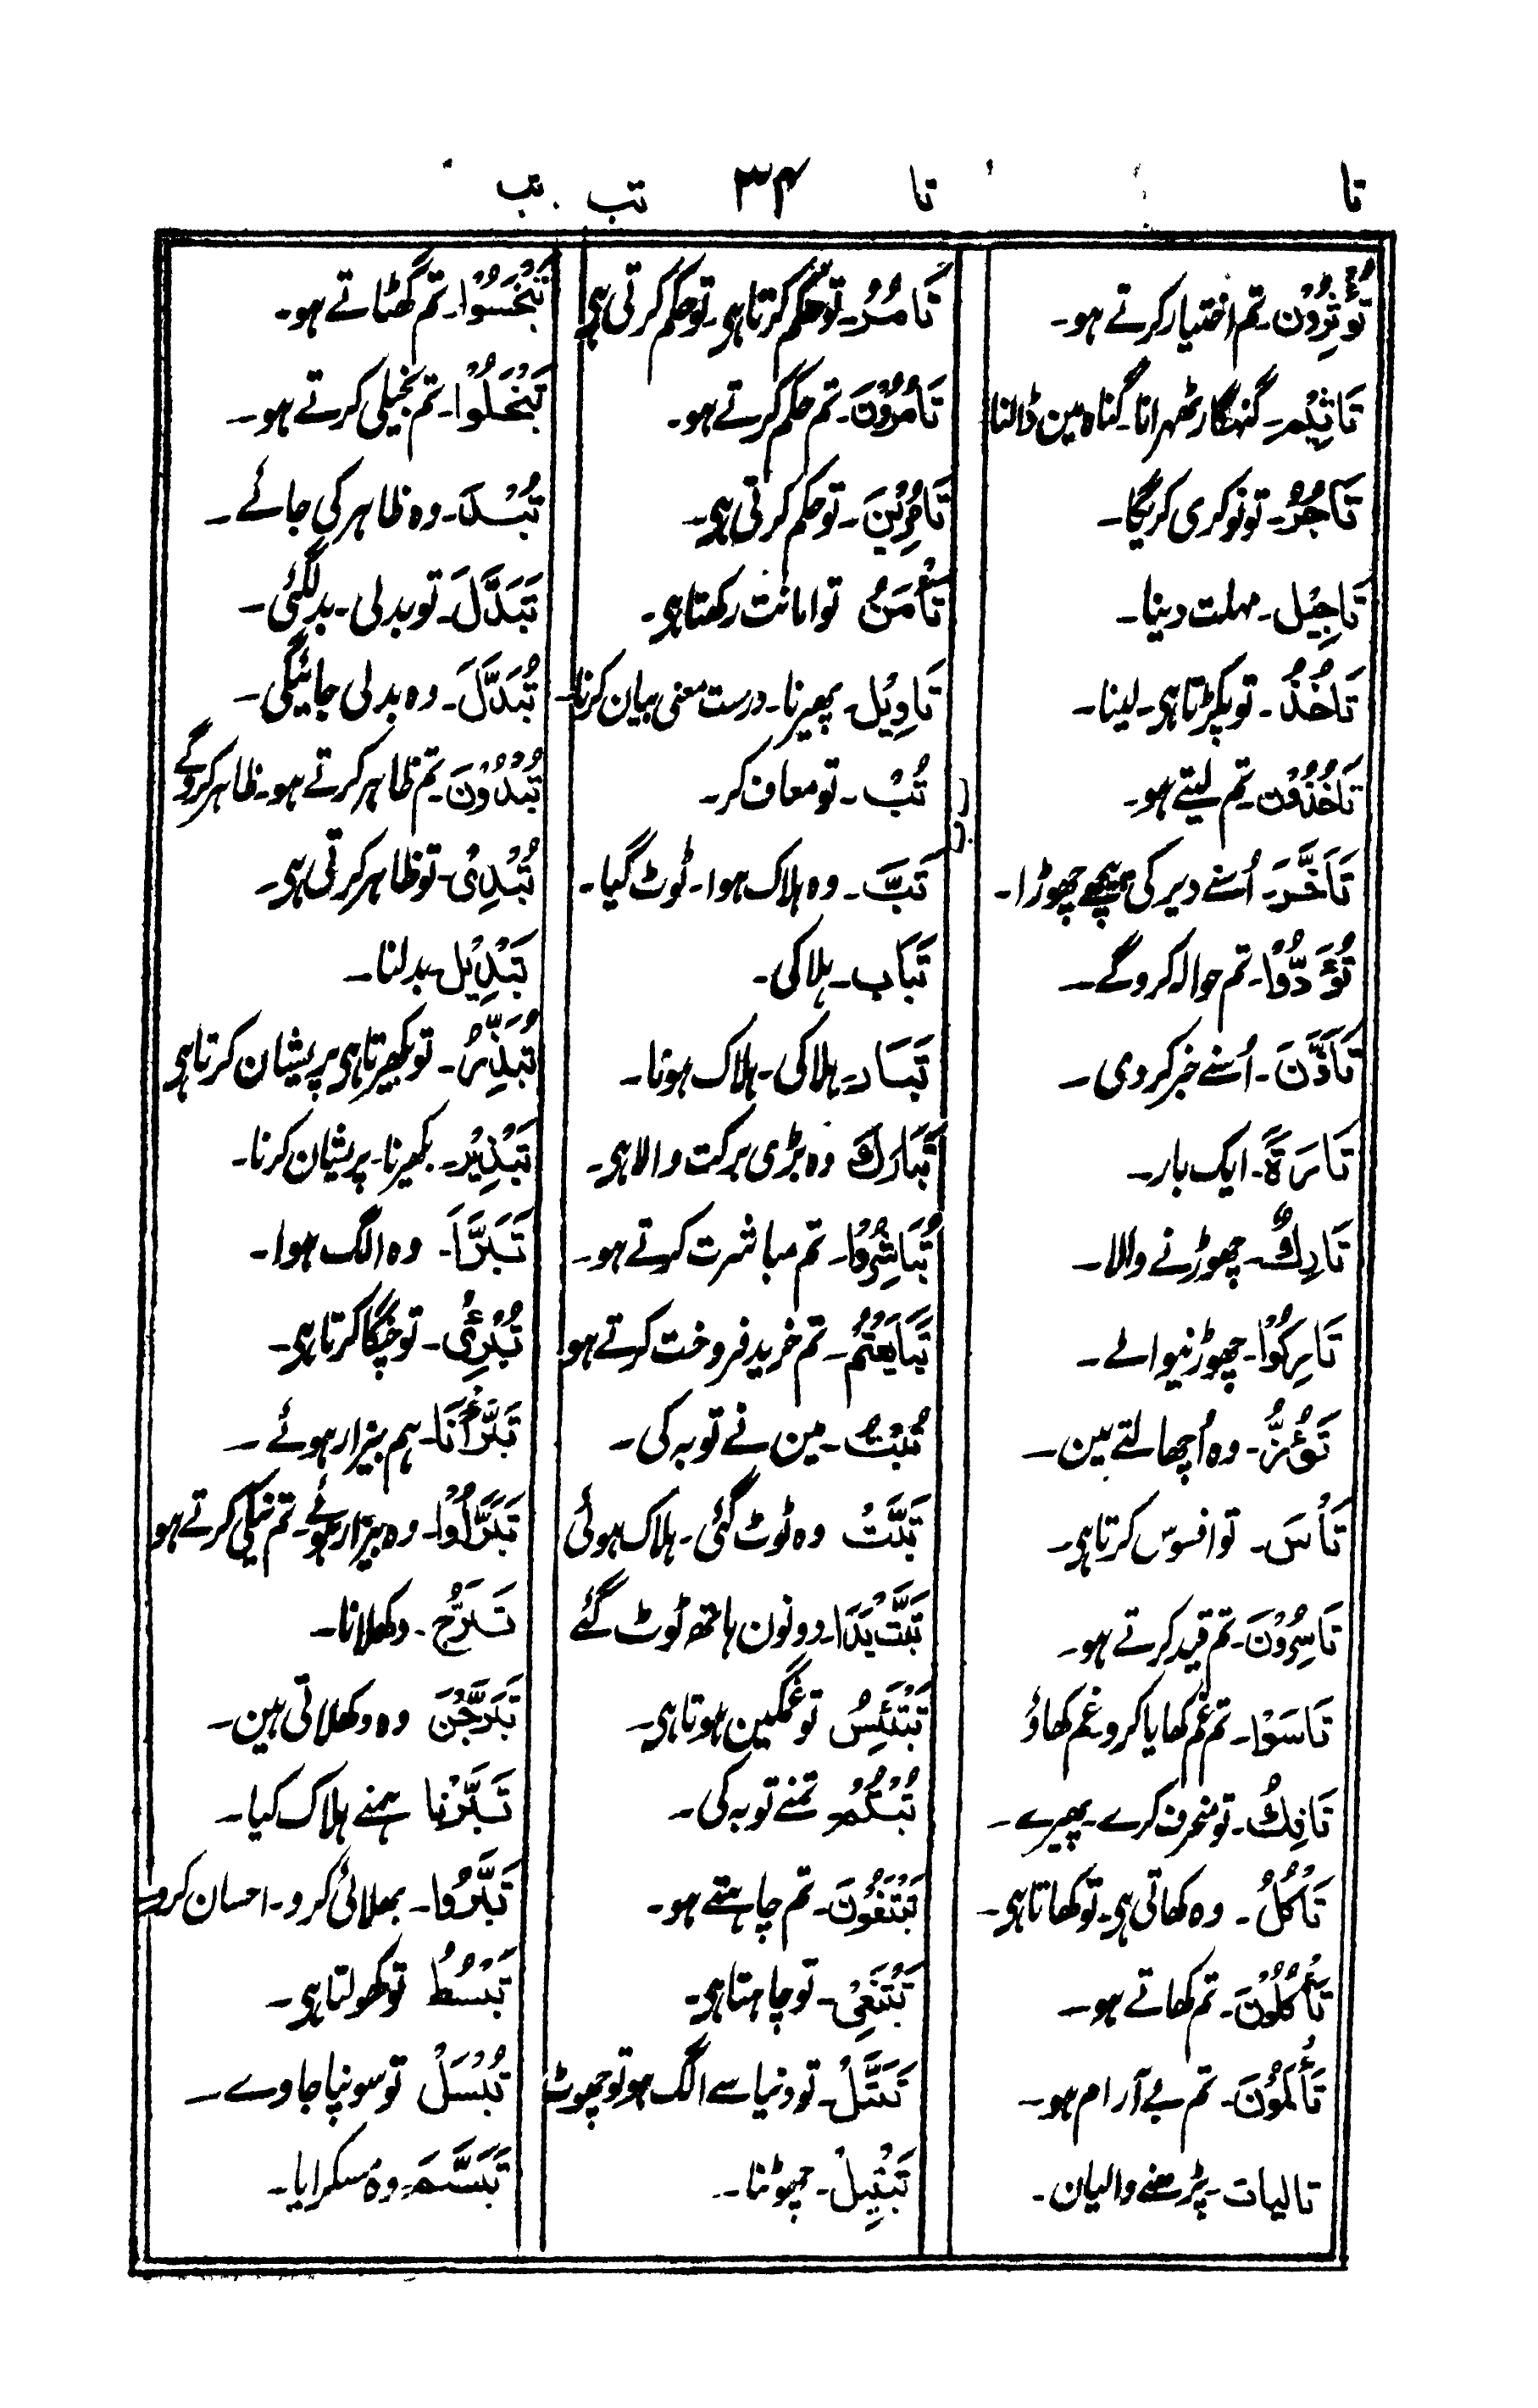 تا
تا
۳۴
تب
تب
تُؤْثِرُوْن۔ تم اختیار کرتے ہو۔
تَاثِیْم۔ گنہگار ٹھہرانا۔ گناہ مین ڈالنا
تَاجُرُ۔ تو نوکری کریگا۔
تَاجِیْل۔ مہلت دینا۔
تَاخُذُ۔ تو پکڑتا ہی۔ لینا۔
تَاخُذُوْن۔ تم لیتے ہو۔
تَاَخَّرَ۔ اُسنے دیر کی پیچھے چھوڑا۔
تُؤَدُّوْا۔ تم حوالہ کروگے۔
تَاَذَّنَ۔ اُسنے خبر کر دی۔
تَارَۃً۔ ایک بار۔
تَارِكٌ۔ چھوڑنے والا۔
تَارِكُوْا۔ چھوڑنیوالے۔
تَؤُزُّ۔ وہ اُچھالتے ہین۔
تَأْسَ۔ تو افسوس کرتا ہی۔
تَاسِرُوْنَ۔ تم قید کرتے ہو۔
تَاسَوْا۔ تم غم کھایا کرو غم کھاؤ
تَافِكُ۔ تو منحرف کرے۔ پھیرے۔
تَاْكُلُ۔ وہ کھاتی ہی۔ تو کھاتا ہی۔
تَأْكُلُوْنَ۔ تم کھاتے ہو۔
تَأْلَمُوْنَ۔ تم بے آرام ہو۔
تالیات۔ پڑھنے والیان۔
تَامُرُ۔ تو حکم کرتا ہی۔ تو حکم کرتی ہی
تَأْمُرُوْنَ۔ تم حکم کرتے ہو۔
تَامُرِیْنَ۔ تو حکم کرتی ہی۔
تَأْمَنُ تو امانت رکھتا ہی۔
تَاوِیْل۔ پھیرنا۔ درست معنی بیان کرنا۔
تُبْ۔ تو معاف کر۔
تَبَّ۔ وہ ہلاک ہوا۔ ٹوٹ گیا۔
تَبَاب۔ ہلاکی۔
تَبَار۔ ہلاکی۔ ہلاک ہونا۔
تَبَارَكَ وہ بڑی برکت والا ہی۔
تُبَاشِرُوْا۔ تم مباشرت کرتے ہو۔
تَبَایَعْتُمْ۔ تم خرید فروخت کرتے ہو
تُبْتُ۔ مین نے توبہ کی۔
تَبَّتْ وہ ٹوٹ گئی۔ ہلاک ہوئی
تَبَّتْ یَدَا۔ دونون ہاتھ ٹوٹ گئے
تَبْتَئِسُ تو غمگین ہوتا ہی۔
تُبْتُمْ تمنے توبہ کی۔
تَبْتَغُوْنَ۔ تم چاہتے ہو۔
تَبْتَغِیْ۔ تو چاہتا ہی۔
تَبَتَّلْ۔ تو دنیا سے الگ ہو تو چھوٹ
تَبْتِیْلْ۔ چھوٹنا۔
تَبْخَسُوْا۔ تم گھٹاتے ہو۔
تَبْخَلُوْا۔ تم بخیلی کرتے ہو۔
تُبْدَ۔ وہ ظاہر کی جائے۔
تَبَدَّلَ۔ تو بدلی۔ بدلگئی۔
تُبَدَّلَ۔ وہ بدلی جائیگی۔
تُبْدُوْنَ۔ تم ظاہر کرتے ہو۔ ظاہر کروگے
تُبْدِیْ۔ تو ظاہر کرتی ہی۔
تَبْدِیْل۔ بدلنا۔
تُبَذِّرُ۔ تو بکھیرتا ہی پریشان کرتا ہی
تَبْذِیْر۔ بکھیرنا۔ پریشان کرنا۔
تَبَرَّاَ۔ وہ الگ ہوا۔
تُبْرِئُ۔ تو چنگا کرتا ہی۔
تَبَرَّأْنَا۔ ہم بیزار ہوئے۔
تَبَرَّاُوْا۔ وہ بیزار ہوئے۔ تم نیکی کرتے ہو
تَبَرُّج۔ دکھلانا۔
تَبَرَّجْنَ وہ دکھلاتی ہین۔
تَبَّرْنَا ہمنے ہلاک کیا۔
تَبَرُّوْا۔ بھلائی کرو۔ احسان کرو۔
تَبْسُطُ تو کھولتا ہی۔
تُبْسَلْ تو سونپا جاوے۔
تَبَسَّمَ۔ وہ مسکرایا۔